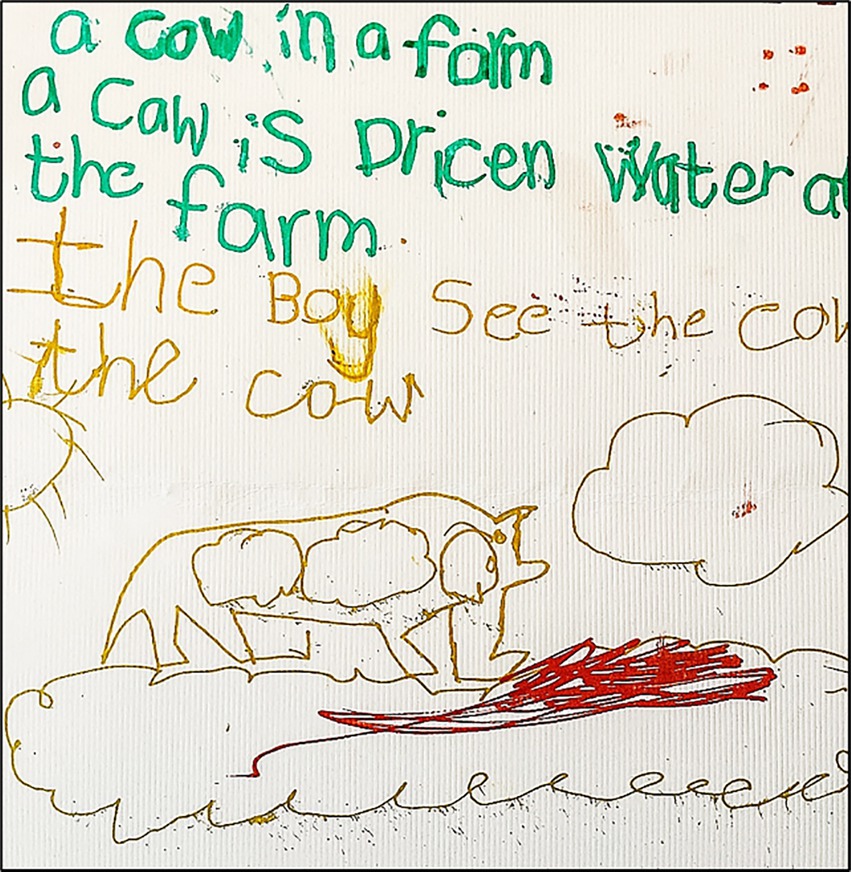 a cow in a farm
a caw is Dricen Water at
the farm
the Boy See the cow
the cow